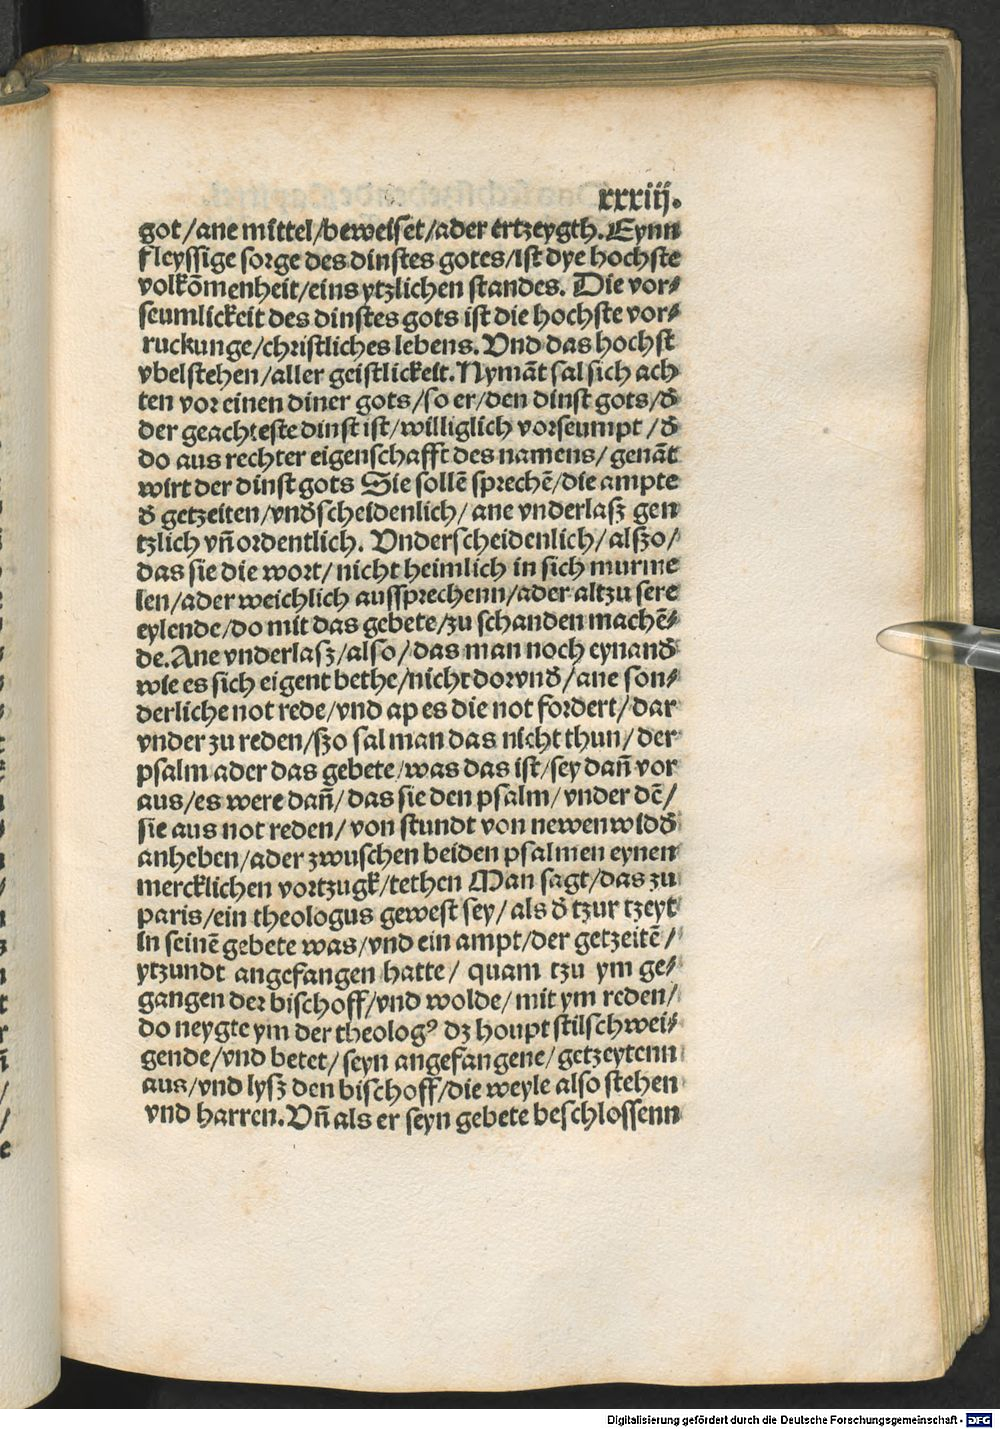 xxxiij.
got/ane mittel/beweiset/ader ertzeygth. Eynn
fleyssige sorge des dinstes gotes/ist dye hochste
volkōmenheit/eins ytzlichen standes. Die vor⸗
seumlickeit des dinstes gots ist die hochste vor⸗
ruckunge/christliches lebens. Vnd das hochst
vbelstehen/aller geistlickeit. Nymāt sal sich ach
ten vor einen diner gots/so er/den dinst gots/d̕
der geachteste dinst ist/williglich vorseumpt/d̕
do aus rechter eigenschafft des namens/genāt
wirt der dinst gots Sie sollē sprechē/die ampte
d̕ getzeiten/vnd̕scheidenlich/ane vnderlasz gen
tzlich vn̄ ordentlich. Vnderscheidenlich/alszo/
das sie die wort/nicht heimlich in sich murme
len/ader weichlich aussprechenn/ader altzu sere
eylende/do mit das gebete/zu schanden machē⸗
de. Ane vnderlasz/also/das man noch eynand̕
wie es sich eigent bethe/nicht dorvnd̕/ane son⸗
derliche not rede/vnd ap es die not fordert/dar
vnder zu reden/szo sal man das nicht thun/der
psalm ader das gebete/was das ist/sey dan̄ vor
aus/es were dan̄/das sie den psalm/vnder dē/
sie aus not reden/von stundt von newen widd̕
anheben/ader zwuschen beiden psalmen eynen
mercklichen vortzugk/tethen Man sagt/das zu
paris/ein theologus gewest sey/als d̕ tzur tzeyt
in seinē gebete was/vnd ein ampt/der getzeitē/
ytzundt angefangen hatte/ quam tzu ym ge⸗
gangen der bischoff/vnd wolde/mit ym reden/
do neygte ym der theologꝰ dz houpt stilschwei⸗
gende/vnd betet/seyn angefangene/getzeytenn
aus/vnd lysz den bischoff/die weyle also stehen
vnd harren. Vn̄ als er seyn gebete beschlossenn
Digitalisierung gefördert durch die Deutsche Forschungsgemeinschaft - DFG